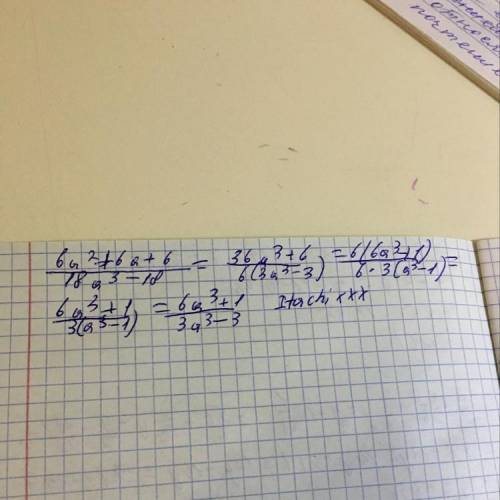 почтени
(6a²+6a+6)/(18a³-18) = (36a³+6)/(6(3a³-3)) = (6(6a³+1))/(6·3(a³-1)) =
(6a³+1)/(3(a³-1)) = (6a³+1)/(3a³-3) Itachi xxx